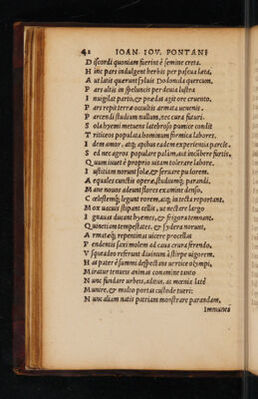 42 IOAN. IOV. PONTANI
D iscordi quoniam fuerint è semine creta.
H inc pars indulgent herbis per pascua læta,
A ut latis quærunt syluis Dodonida quercum.
P ars altis in speluncis per deuia lustra
I nuigilat partu, & prædas agit ore cruento.
P ars repit terræ occultis armata uenenis.
P arcendi studium nullum, nec cura futuri.
S ola hyemi metuens latebroso pumice condit
T riticeos populatrix hominum formica labores.
I dem amor, atq; aphas eadem experientia parcæ.
S ed nec agros populare palàm, aut insilere furtis,
Q uum iuuet è proprio uitam tolerare labore.
I ustitiam norunt solæ, & seruare pudorem.
A equales cunctis operæ, studiumq; parandi.
M ane nouos adeunt flores examine denso,
C œlestemq; legunt rorem, atq; in tecta reportant.
M ox uacuis stipant cellis, ut nectare largo
I gnauas ducant hyemes, & frigora temnant.
Q uinetiam tempestates, & sydera norunt,
A rmatæq; repentinas uicere procellas
P endentis saxi molem ad caua crura ferendo.
V sq; adeo referunt diuinum à stirpe uigorem.
H as pater è summi despectans uertice olympi,
M iratur tenues animas conamine tanto
N unc fundare urbeis, aditus, ac mœnia latè
M unire, & multo portas custode tueri:
N unc aliam natis patriam monstrare parandam,
Immunes